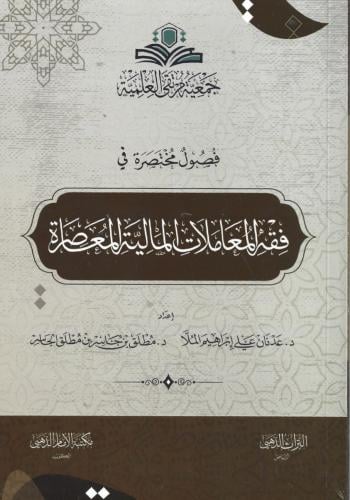 جمعية مرتقى العلمية
فصول مختصرة في
فقه المعاملات المالية المعاصرة
إعداد
د. عدنان علي إبراهيم الملا د. مطلق بن جاسر بن مطلق الجاسر
التراث الذهبي مكتبة الإمام الذهبي
الرياض الكويت